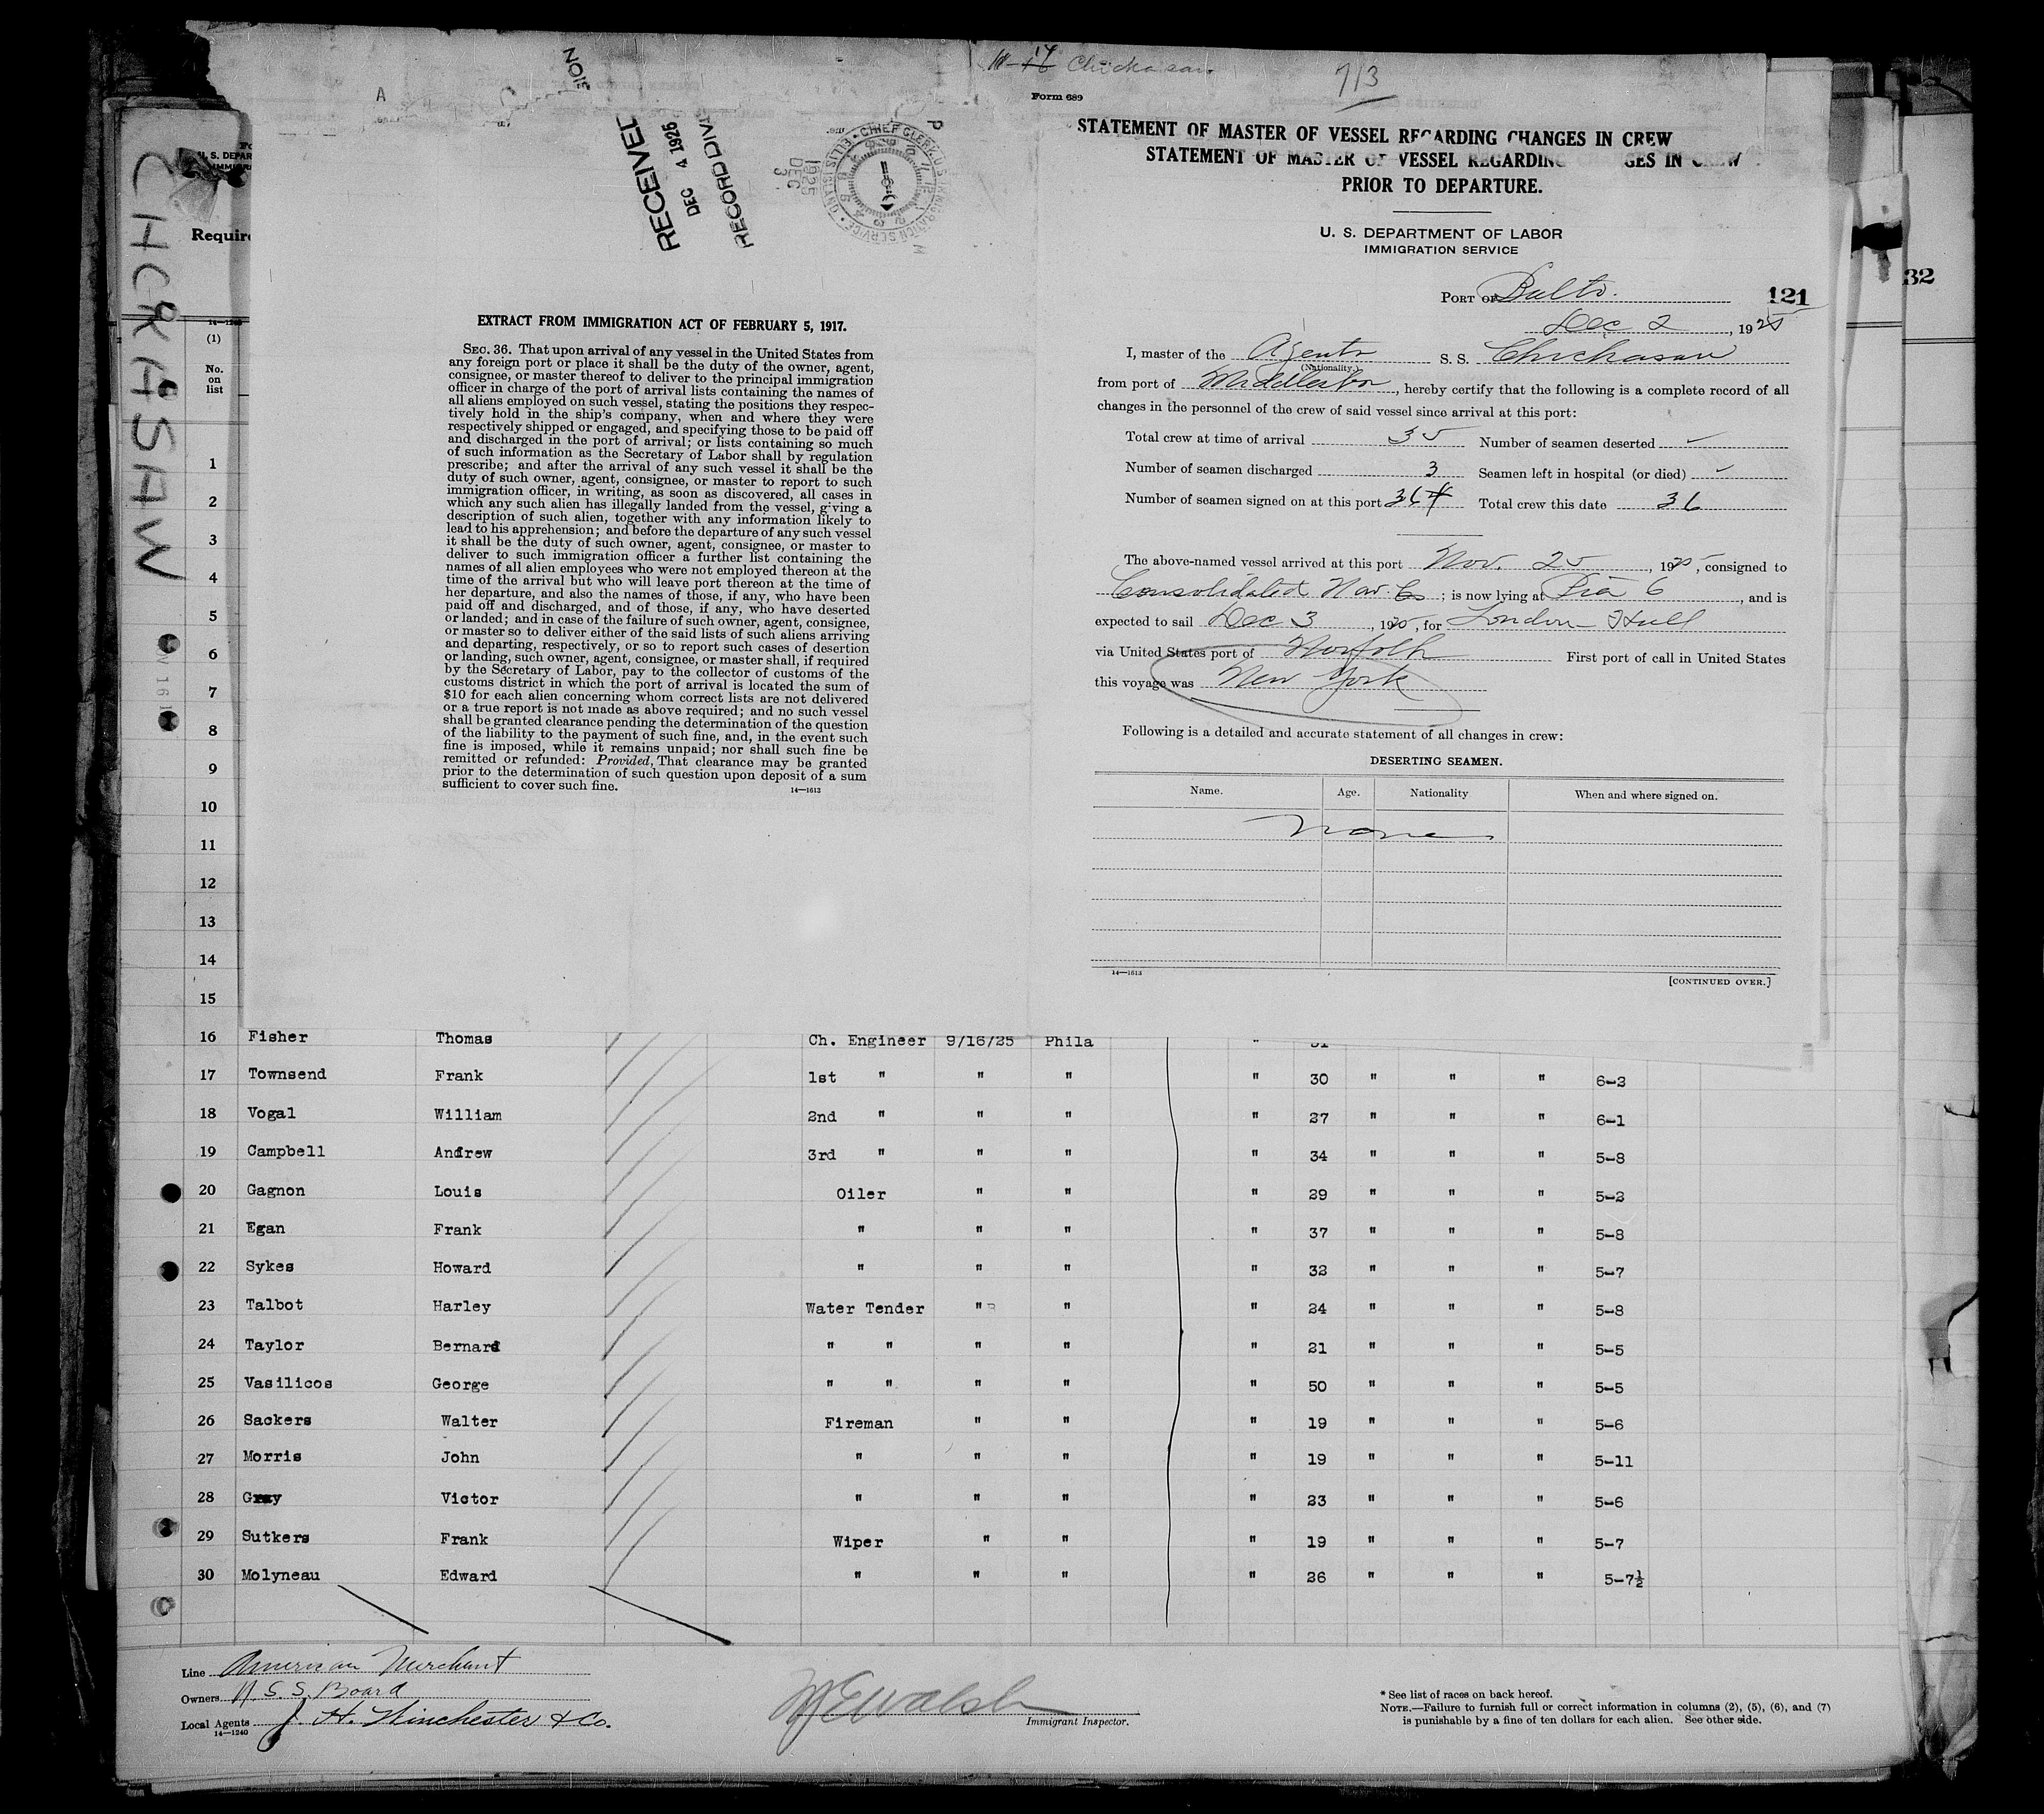 14
Chickasaw
713
A
Form 689
RECEIVED
DEC 4 1925
RECORD DIVI
SION
1925
DEC
3
CHIEF CLERK, U.S. IMMIGRATION SERVICE • ELLIS ISLAND
STATEMENT OF MASTER OF VESSEL REGARDING CHANGES IN CREW
STATEMENT OF MASTER OF VESSEL REGARDING GES IN CREW
PRIOR TO DEPARTURE.
U. S. DEPARTMENT OF LABOR
IMMIGRATION SERVICE
PORT OF Balto.
121
Dec 2, 1925
I, master of the Agents S. S. Chickasaw
(Nationality.)
from port of Middlesbor, hereby certify that the following is a complete record of all
changes in the personnel of the crew of said vessel since arrival at this port:
Total crew at time of arrival 35 Number of seamen deserted ✓
Number of seamen discharged 3 Seamen left in hospital (or died) ✓
Number of seamen signed on at this port 364 Total crew this date 36
The above-named vessel arrived at this port Nov. 25, 1925, consigned to
Consolidated Nav. Co; is now lying at Pier 6, and is
expected to sail Dec 3, 1925, for London - Hull
via United States port of Norfolk First port of call in United States
this voyage was New York
Following is a detailed and accurate statement of all changes in crew:
DESERTING SEAMEN.
Name. Age. Nationality When and where signed on.
None
14—1613
[CONTINUED OVER.]
EXTRACT FROM IMMIGRATION ACT OF FEBRUARY 5, 1917.
SEC. 36. That upon arrival of any vessel in the United States from
any foreign port or place it shall be the duty of the owner, agent,
consignee, or master thereof to deliver to the principal immigration
officer in charge of the port of arrival lists containing the names of
all aliens employed on such vessel, stating the positions they respec-
tively hold in the ship's company, when and where they were
respectively shipped or engaged, and specifying those to be paid off
and discharged in the port of arrival; or lists containing so much
of such information as the Secretary of Labor shall by regulation
prescribe; and after the arrival of any such vessel it shall be the
duty of such owner, agent, consignee, or master to report to such
immigration officer, in writing, as soon as discovered, all cases in
which any such alien has illegally landed from the vessel, giving a
description of such alien, together with any information likely to
lead to his apprehension; and before the departure of any such vessel
it shall be the duty of such owner, agent, consignee, or master to
deliver to such immigration officer a further list containing the
names of all alien employees who were not employed thereon at the
time of the arrival but who will leave port thereon at the time of
her departure, and also the names of those, if any, who have been
paid off and discharged, and of those, if any, who have deserted
or landed; and in case of the failure of such owner, agent, consignee,
or master so to deliver either of the said lists of such aliens arriving
and departing, respectively, or so to report such cases of desertion
or landing, such owner, agent, consignee, or master shall, if required
by the Secretary of Labor, pay to the collector of customs of the
customs district in which the port of arrival is located the sum of
$10 for each alien concerning whom correct lists are not delivered
or a true report is not made as above required; and no such vessel
shall be granted clearance pending the determination of the question
of the liability to the payment of such fine, and, in the event such
fine is imposed, while it remains unpaid; nor shall such fine be
remitted or refunded: Provided, That clearance may be granted
prior to the determination of such question upon deposit of a sum
sufficient to cover such fine.
14—1613
CHCKASAW
U. S. DEPAR
IMMIGR
Require
14—1240
32
(1)
No.
on
list
1
2
3
4
5
6
7
8
9
10
11
12
13
14
15
16 Fisher Thomas Ch. Engineer 9/16/25 Phila " 31
17 Townsend Frank 1st " " " " 30 " " " 6-3
18 Vogal William 2nd " " " " 27 " " " 6-1
19 Campbell Andrew 3rd " " " " 34 " " " 5-8
20 Gagnon Louis Oiler " " " 29 " " " 5-3
21 Egan Frank " " " " 37 " " " 5-8
22 Sykes Howard " " " " 32 " " " 5-7
23 Talbot Harley Water Tender " " " 24 " " " 5-8
24 Taylor Bernard " " " " " 21 " " " 5-5
25 Vasilicos George " " " " " 50 " " " 5-5
26 Sackers Walter Fireman " " " 19 " " " 5-6
27 Morris John " " " " 19 " " " 5-11
28 Gray Victor " " " " 23 " " " 5-6
29 Sutkers Frank Wiper " " " 19 " " " 5-7
30 Molyneau Edward " " " " 26 " " " 5-7½
Line American Merchant
Owners U. S. S. Board
Local Agents J. H. Winchester & Co.
14—1240
WJEWalsh
Immigrant Inspector.
* See list of races on back hereof.
NOTE.—Failure to furnish full or correct information in columns (2), (5), (6), and (7)
is punishable by a fine of ten dollars for each alien. See other side.